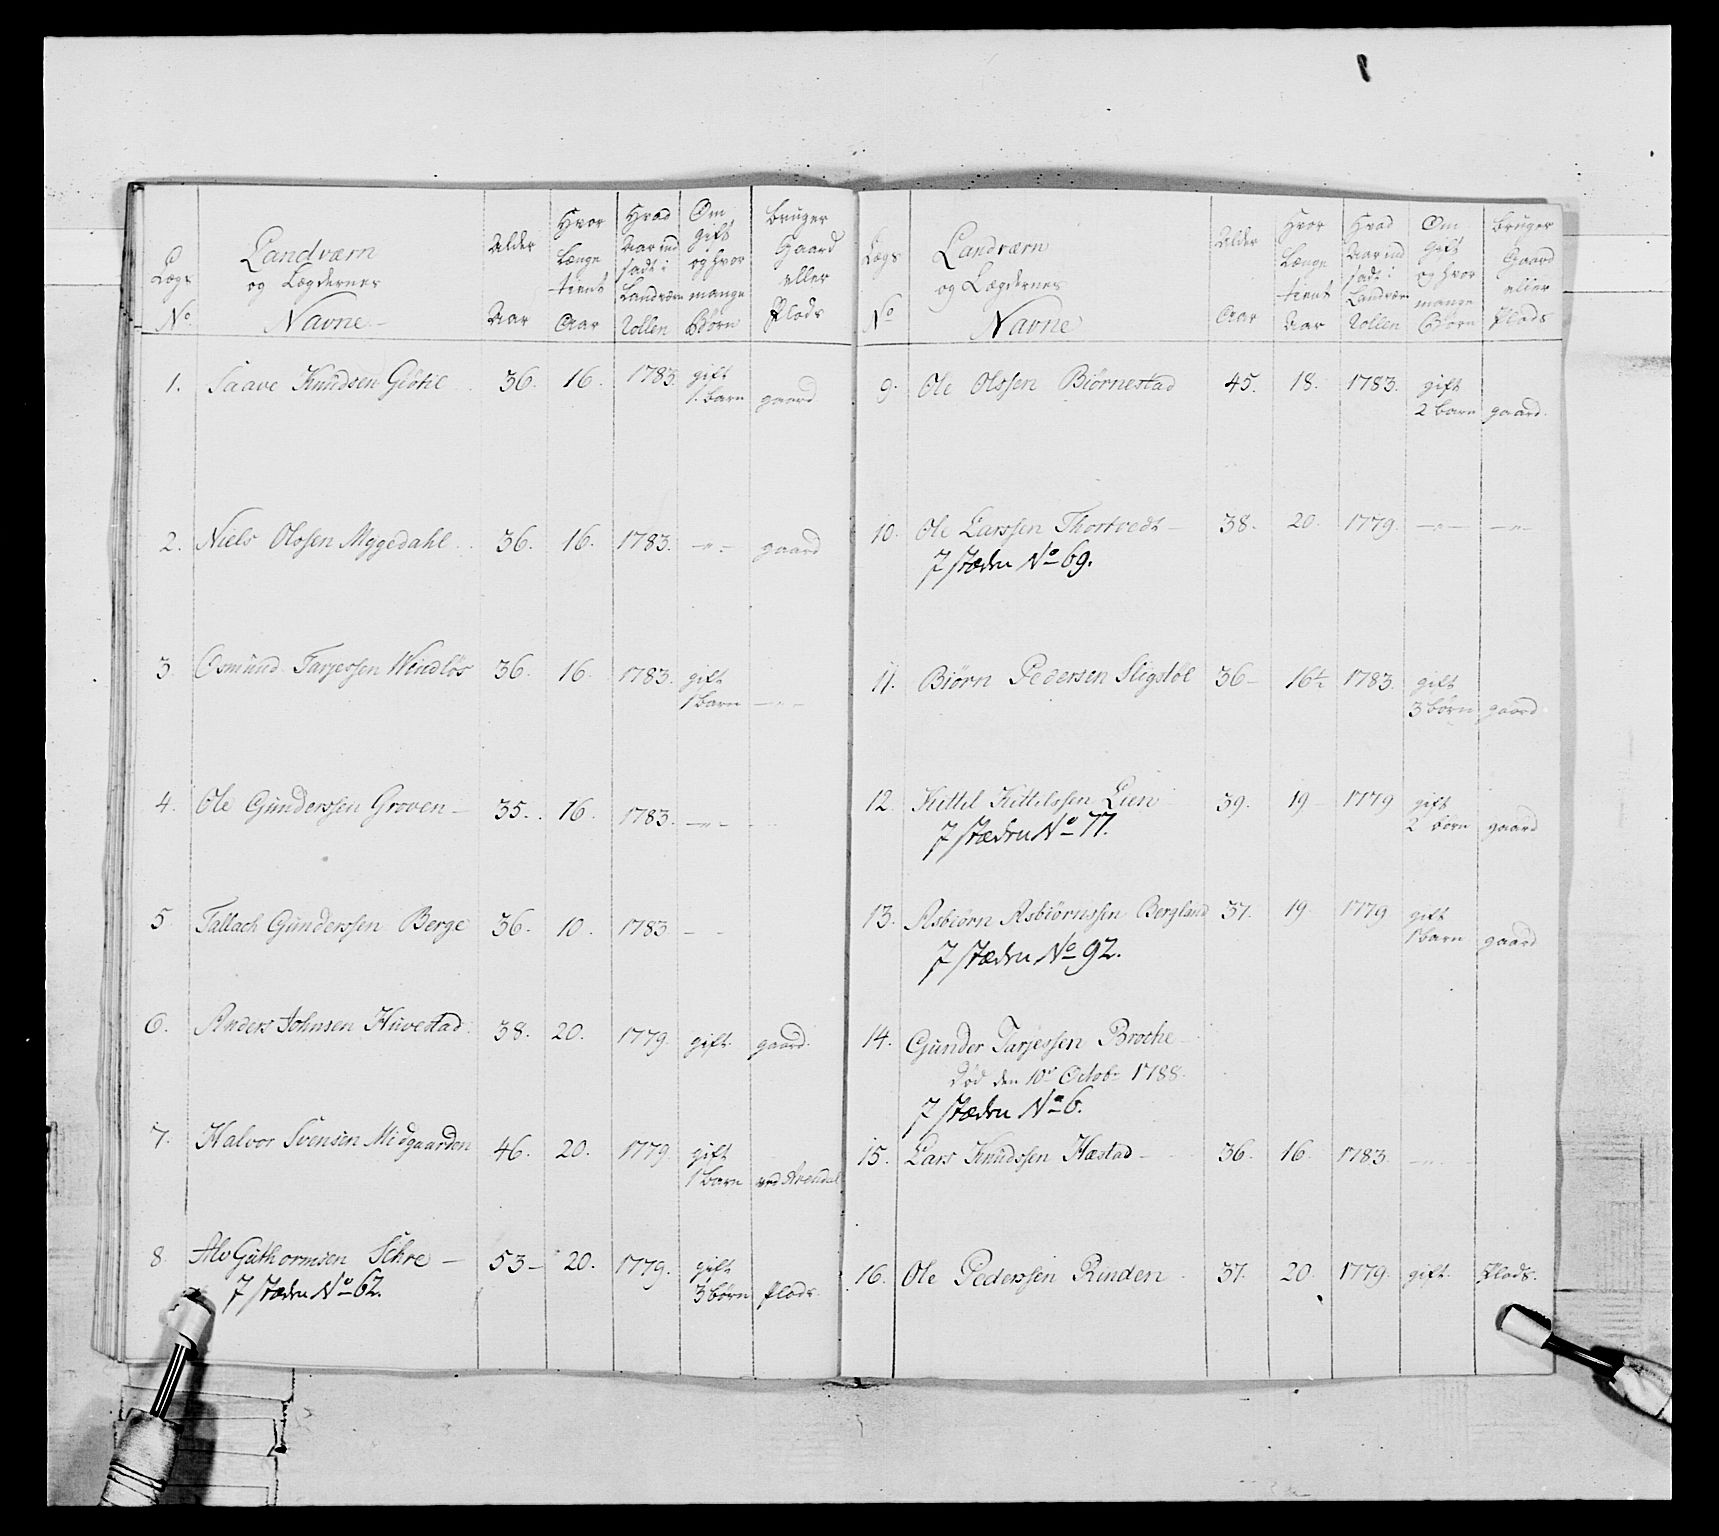 Lægs No. | Landværn og Lægdernes Navne | Alder Aar | Hvor længe tient Aar | Hvad Aar ind sadt i Landværn Rollen | Om gift og hvor mange Børn | bruger Gaard eller Plads
1. Saave Knudsen Giötil 36. 16. 1783. gift
1. barn gaard
2. Niels Olssen Myggedahl 36. 16. 1783. —"— gaard
3. Osmund Tarjessen Windlös 36. 16. 1783. gift
1 barn —"—
4. Ole Gunderssen Groven — 35. 16. 1783. —"—
5. Tallach Gunderssen Berge 36. 10. 1783 —
6. Anders Johnsen Huvestad 38. 20. 1779. gift gaard.
7. Halvor Svensen Midgaarden 46. 20. 1779. gift
1 barn ved Arendal
8. Alv Guthormsen Schre — 53 — 20. 1779. gift
3 börn Plads.
J stæden No 62.
Lægs No | Landværn og Lægdernes Navne | Alder Aar | Hvor Længe tient Aar | Hvad Aar ind sadt i Landværn Rollen | Om gift og hvor mange Børn | bruger Gaard eller Plads
9. Ole Olssen Biörnestad 45. 18. 1783. gift
2 barn gaard.
10. Ole Larssen Thortvedt — 38. 20. 1779. —"— —"—
J stæden No 69.
11. Biörn Pedersen Sligstöl 36 — 16½ 1783. gift
3 börn gaard
12. Kittil Kittilssen Lien 39. 19 — 1779 gift
2 börn gaard
J stæden No 77.
13. Asbiörn Asbiörnssen Bergland 37. 19. 1779 gift
1 barn gaard
J stæden No 92.
14. Gunder Tarjessen Broche —
död den 10de Octobr 1788.
J stæden No 6.
15. Lars Knudssen Hæstad — 36. 16. 1783 —"—
16. Ole Pederssen Rinden 37. 20. 1779. gift. Plads.